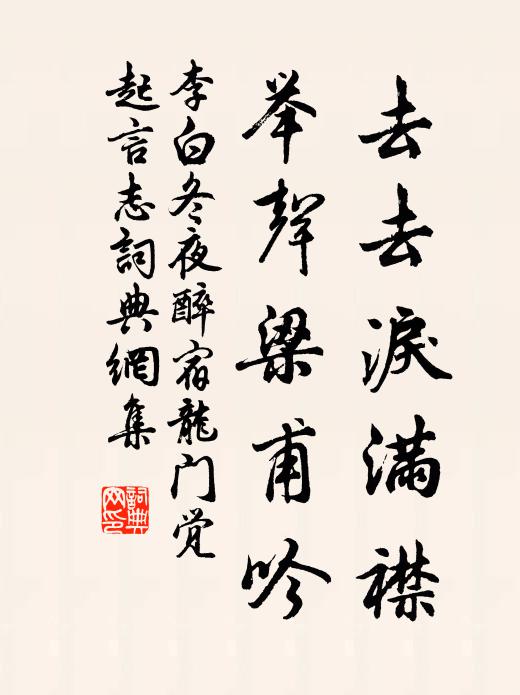 去去淚滿襟
举聲梁甫吟
李白冬夜醉宿龍门觉
起言志詞典網集
詞典网印